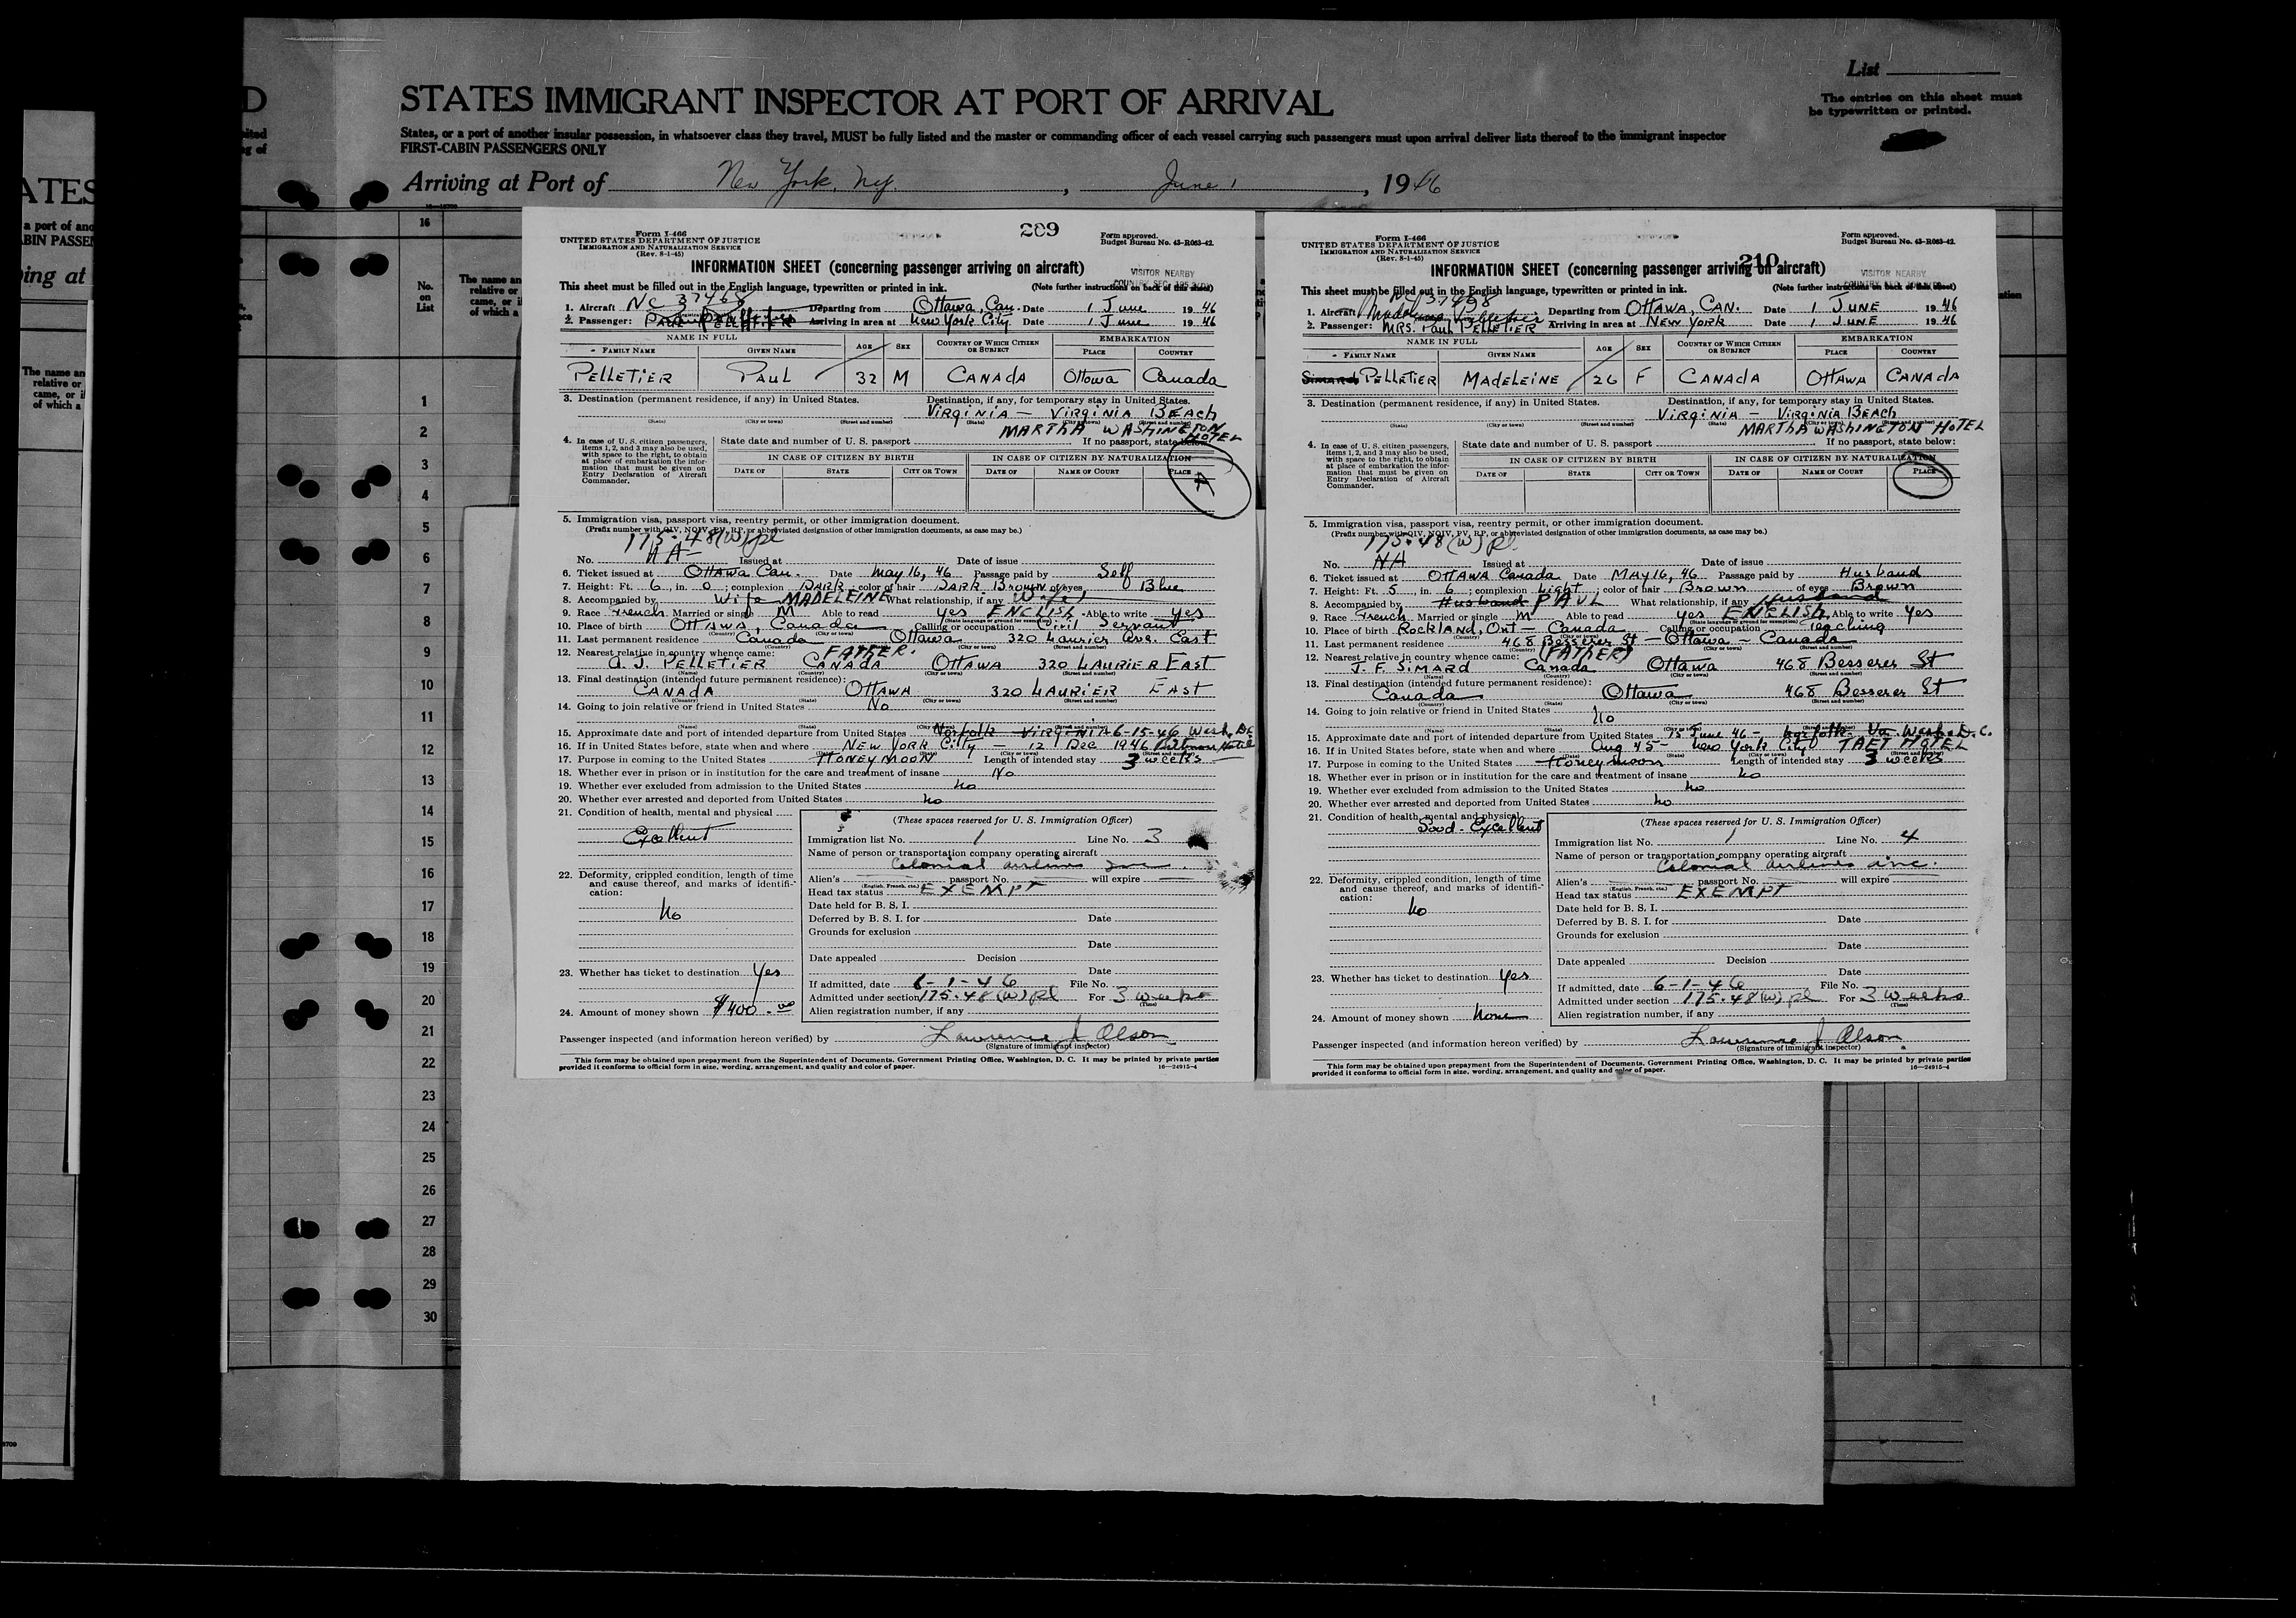 List
STATES IMMIGRANT INSPECTOR AT PORT OF ARRIVAL
The entries on this sheet must
be typewritten or printed.
States, or a port of another insular possession, in whatsoever class they travel, MUST be fully listed and the master or commanding officer of each vessel carrying such passengers must upon arrival deliver lists thereof to the immigrant inspector
FIRST-CABIN PASSENGERS ONLY
Arriving at Port of New York, N.Y., June 1, 1946
D
ATES
a port of
ing at
16
No.
on
List
The name an
relative or
came, or i
of which a
1
2
3
4
5
6
7
8
9
10
11
12
13
14
15
16
17
18
19
20
21
22
23
24
25
26
27
28
29
30
209
Form I-466
UNITED STATES DEPARTMENT OF JUSTICE
IMMIGRATION AND NATURALIZATION SERVICE
(Rev. 8-1-45)
Form approved.
Budget Bureau No. 43-R063-42.
INFORMATION SHEET (concerning passenger arriving on aircraft)
VISITOR NEARBY
This sheet must be filled out in the English language, typewritten or printed in ink. (Note further instructions on back of this sheet)
1. Aircraft NC 37468 Departing from Ottawa, Can. Date 1 June 1946
2. Passenger: PAUL PELLETIER Arriving in area at New York City Date 1 June 1946
NAME IN FULL AGE SEX COUNTRY OF WHICH CITIZEN OR SUBJECT EMBARKATION
FAMILY NAME GIVEN NAME PLACE COUNTRY
PELLETIER PAUL 32 M CANADA Ottowa Canada
3. Destination (permanent residence, if any) in United States. Destination, if any, for temporary stay in United States.
VIRGINIA — VIRGINIA BEACH
(State) (City or town) (Street and number) (State) (City or town) (Street and number)
MARTHA WASHINGTON HOTEL
4. In case of U. S. citizen passengers, items 1, 2, and 3 may also be used, with space to the right, to obtain at place of embarkation the information that must be given on Entry Declaration of Aircraft Commander.
State date and number of U. S. passport If no passport, state below:
IN CASE OF CITIZEN BY BIRTH IN CASE OF CITIZEN BY NATURALIZATION
DATE OF STATE CITY OR TOWN DATE OF NAME OF COURT PLACE
5. Immigration visa, passport visa, reentry permit, or other immigration document.
(Prefix number with QIV, NQIV, PV, RP, or abbreviated designation of other immigration documents, as case may be.)
175.48(W)pl
No. NA Issued at Date of issue
6. Ticket issued at Ottawa Can. Date May 16, 46 Passage paid by Self
7. Height: Ft. 6, in. 0; complexion DARK; color of hair DARK BROWN of eyes Blue
8. Accompanied by Wife MADELEINE What relationship, if any Wife
9. Race French Married or single M Able to read yes ENGLISH Able to write yes
10. Place of birth Ottawa, Canada Calling or occupation Civil Servant
11. Last permanent residence Canada Ottawa 320 Laurier Ave. East
12. Nearest relative in country whence came: FATHER.
A. J. PELLETIER CANADA OTTAWA 320 LAURIER EAST
13. Final destination (intended future permanent residence):
CANADA OTTAWA 320 LAURIER EAST
14. Going to join relative or friend in United States No
15. Approximate date and port of intended departure from United States Norfolk VIRGINIA 6-15-46 Wash. DC
16. If in United States before, state when and where NEW YORK City — 12 Dec 1946
17. Purpose in coming to the United States HONEYMOON Length of intended stay 3 weeks
18. Whether ever in prison or in institution for the care and treatment of insane No
19. Whether ever excluded from admission to the United States No
20. Whether ever arrested and deported from United States No
21. Condition of health, mental and physical
Excellent
22. Deformity, crippled condition, length of time and cause thereof, and marks of identification:
No
23. Whether has ticket to destination Yes
24. Amount of money shown $400.00
(These spaces reserved for U. S. Immigration Officer)
Immigration list No. 1 Line No. 3
Name of person or transportation company operating aircraft
Colonial Airlines Inc.
Alien's passport No. will expire
(English, French, etc.)
Head tax status EXEMPT
Date held for B. S. I.
Deferred by B. S. I. for Date
Grounds for exclusion
Date
Date appealed Decision
Date
If admitted, date 6-1-46 File No.
Admitted under section 175.48(W)pl For 3 weeks
(Time)
Alien registration number, if any
Passenger inspected (and information hereon verified) by Lawrence J Olson
(Signature of immigrant inspector)
This form may be obtained upon prepayment from the Superintendent of Documents, Government Printing Office, Washington, D. C. It may be printed by private parties
provided it conforms to official form in size, wording, arrangement, and quality and color of paper. 16—24915-4
210
Form I-466
UNITED STATES DEPARTMENT OF JUSTICE
IMMIGRATION AND NATURALIZATION SERVICE
(Rev. 8-1-45)
Form approved.
Budget Bureau No. 43-R063-42.
INFORMATION SHEET (concerning passenger arriving on aircraft)
VISITOR NEARBY
This sheet must be filled out in the English language, typewritten or printed in ink. (Note further instructions on back of this sheet)
1. Aircraft NC 37468 Departing from OTTAWA, CAN. Date 1 JUNE 1946
2. Passenger: MRS. Paul PELLETIER Arriving in area at NEW YORK Date 1 JUNE 1946
NAME IN FULL AGE SEX COUNTRY OF WHICH CITIZEN OR SUBJECT EMBARKATION
FAMILY NAME GIVEN NAME PLACE COUNTRY
Simard PELLETIER MADELEINE 26 F CANADA OTTAWA CANADA
3. Destination (permanent residence, if any) in United States. Destination, if any, for temporary stay in United States.
VIRGINIA — VIRGINIA BEACH
MARTHA WASHINGTON HOTEL
4. In case of U. S. citizen passengers, items 1, 2, and 3 may also be used, with space to the right, to obtain at place of embarkation the information that must be given on Entry Declaration of Aircraft Commander.
State date and number of U. S. passport If no passport, state below:
IN CASE OF CITIZEN BY BIRTH IN CASE OF CITIZEN BY NATURALIZATION
DATE OF STATE CITY OR TOWN DATE OF NAME OF COURT PLACE
5. Immigration visa, passport visa, reentry permit, or other immigration document.
(Prefix number with QIV, NQIV, PV, RP, or abbreviated designation of other immigration documents, as case may be.)
175.48(W)pl
No. NA Issued at Date of issue
6. Ticket issued at OTTAWA Canada Date MAY 16, 46 Passage paid by Husband
7. Height: Ft. 5, in. 6; complexion Light; color of hair Brown of eyes Brown
8. Accompanied by Husband PAUL What relationship, if any Husband
9. Race French Married or single M Able to read yes ENGLISH Able to write yes
10. Place of birth Rockland, Ont — Canada Calling or occupation Teaching
11. Last permanent residence 468 Besserer St — Ottawa — Canada
12. Nearest relative in country whence came: (FATHER)
J. F. SIMARD Canada Ottawa 468 Besserer St
13. Final destination (intended future permanent residence):
Canada Ottawa 468 Besserer St
14. Going to join relative or friend in United States No
15. Approximate date and port of intended departure from United States 15 June 46 — Norfolk Va. Wash. D.C.
16. If in United States before, state when and where Aug 45 — New York City TAFT HOTEL
17. Purpose in coming to the United States Honeymoon Length of intended stay 3 weeks
18. Whether ever in prison or in institution for the care and treatment of insane No
19. Whether ever excluded from admission to the United States No
20. Whether ever arrested and deported from United States No
21. Condition of health, mental and physical
Good - Excellent
22. Deformity, crippled condition, length of time and cause thereof, and marks of identification:
No
23. Whether has ticket to destination Yes
24. Amount of money shown None
(These spaces reserved for U. S. Immigration Officer)
Immigration list No. 1 Line No. 4
Name of person or transportation company operating aircraft
Colonial Airlines Inc.
Alien's passport No. will expire
(English, French, etc.)
Head tax status EXEMPT
Date held for B. S. I.
Deferred by B. S. I. for Date
Grounds for exclusion
Date
Date appealed Decision
Date
If admitted, date 6-1-46 File No.
Admitted under section 175.48(W)pl For 3 weeks
(Time)
Alien registration number, if any
Passenger inspected (and information hereon verified) by Lawrence J Olson
(Signature of immigrant inspector)
This form may be obtained upon prepayment from the Superintendent of Documents, Government Printing Office, Washington, D. C. It may be printed by private parties
provided it conforms to official form in size, wording, arrangement, and quality and color of paper. 16—24915-4